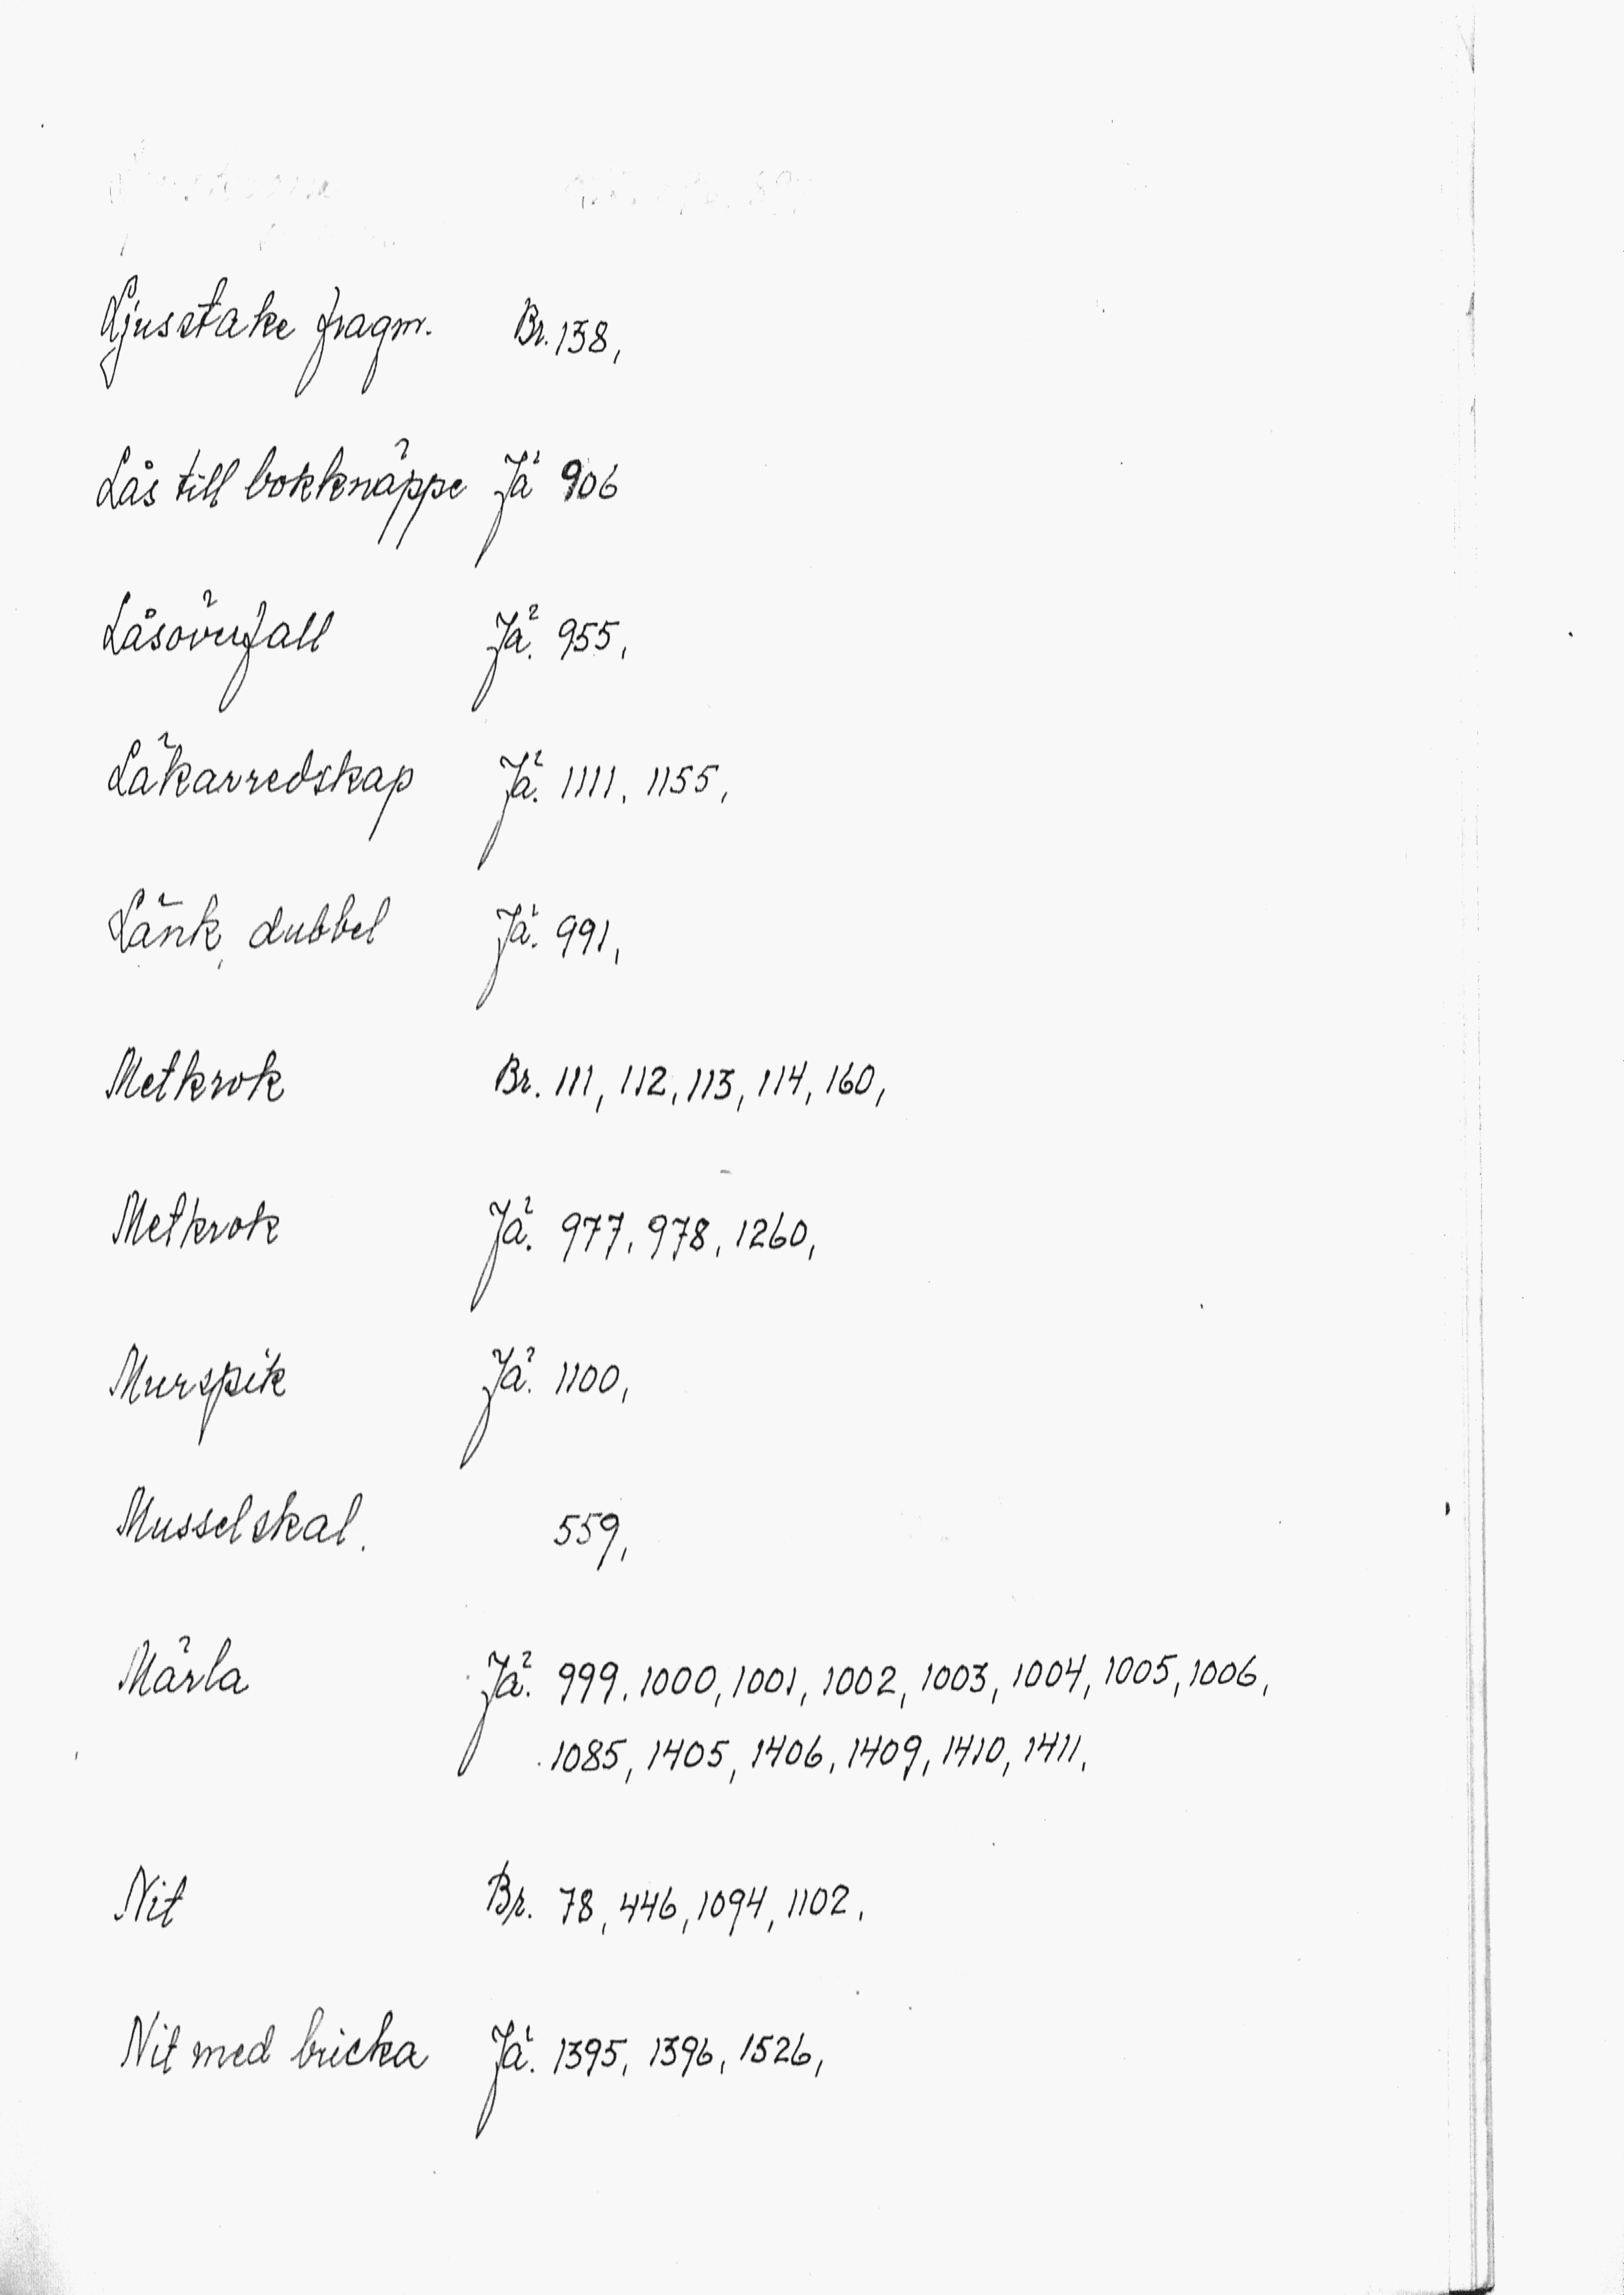 Ljusstake fragm. Br. 138,
Lås till bokknäppe Jä 906
Låsöverfall Jä. 955,
Läkarredskap Jä. 1111, 1155,
Länk, dubbel Jä. 991,
Metkrok Br. 111, 112, 113, 114, 160,
Metkrok Jä. 977, 978, 1260,
Murspik Jä. 1100,
Musselskal. 559,
Märla Jä. 999, 1000, 1001, 1002, 1003, 1004, 1005, 1006,
1085, 1405, 1406, 1409, 1410, 1411,
Nit Br. 78, 446, 1094, 1102,
Nit med bricka Jä. 1395, 1396, 1526,